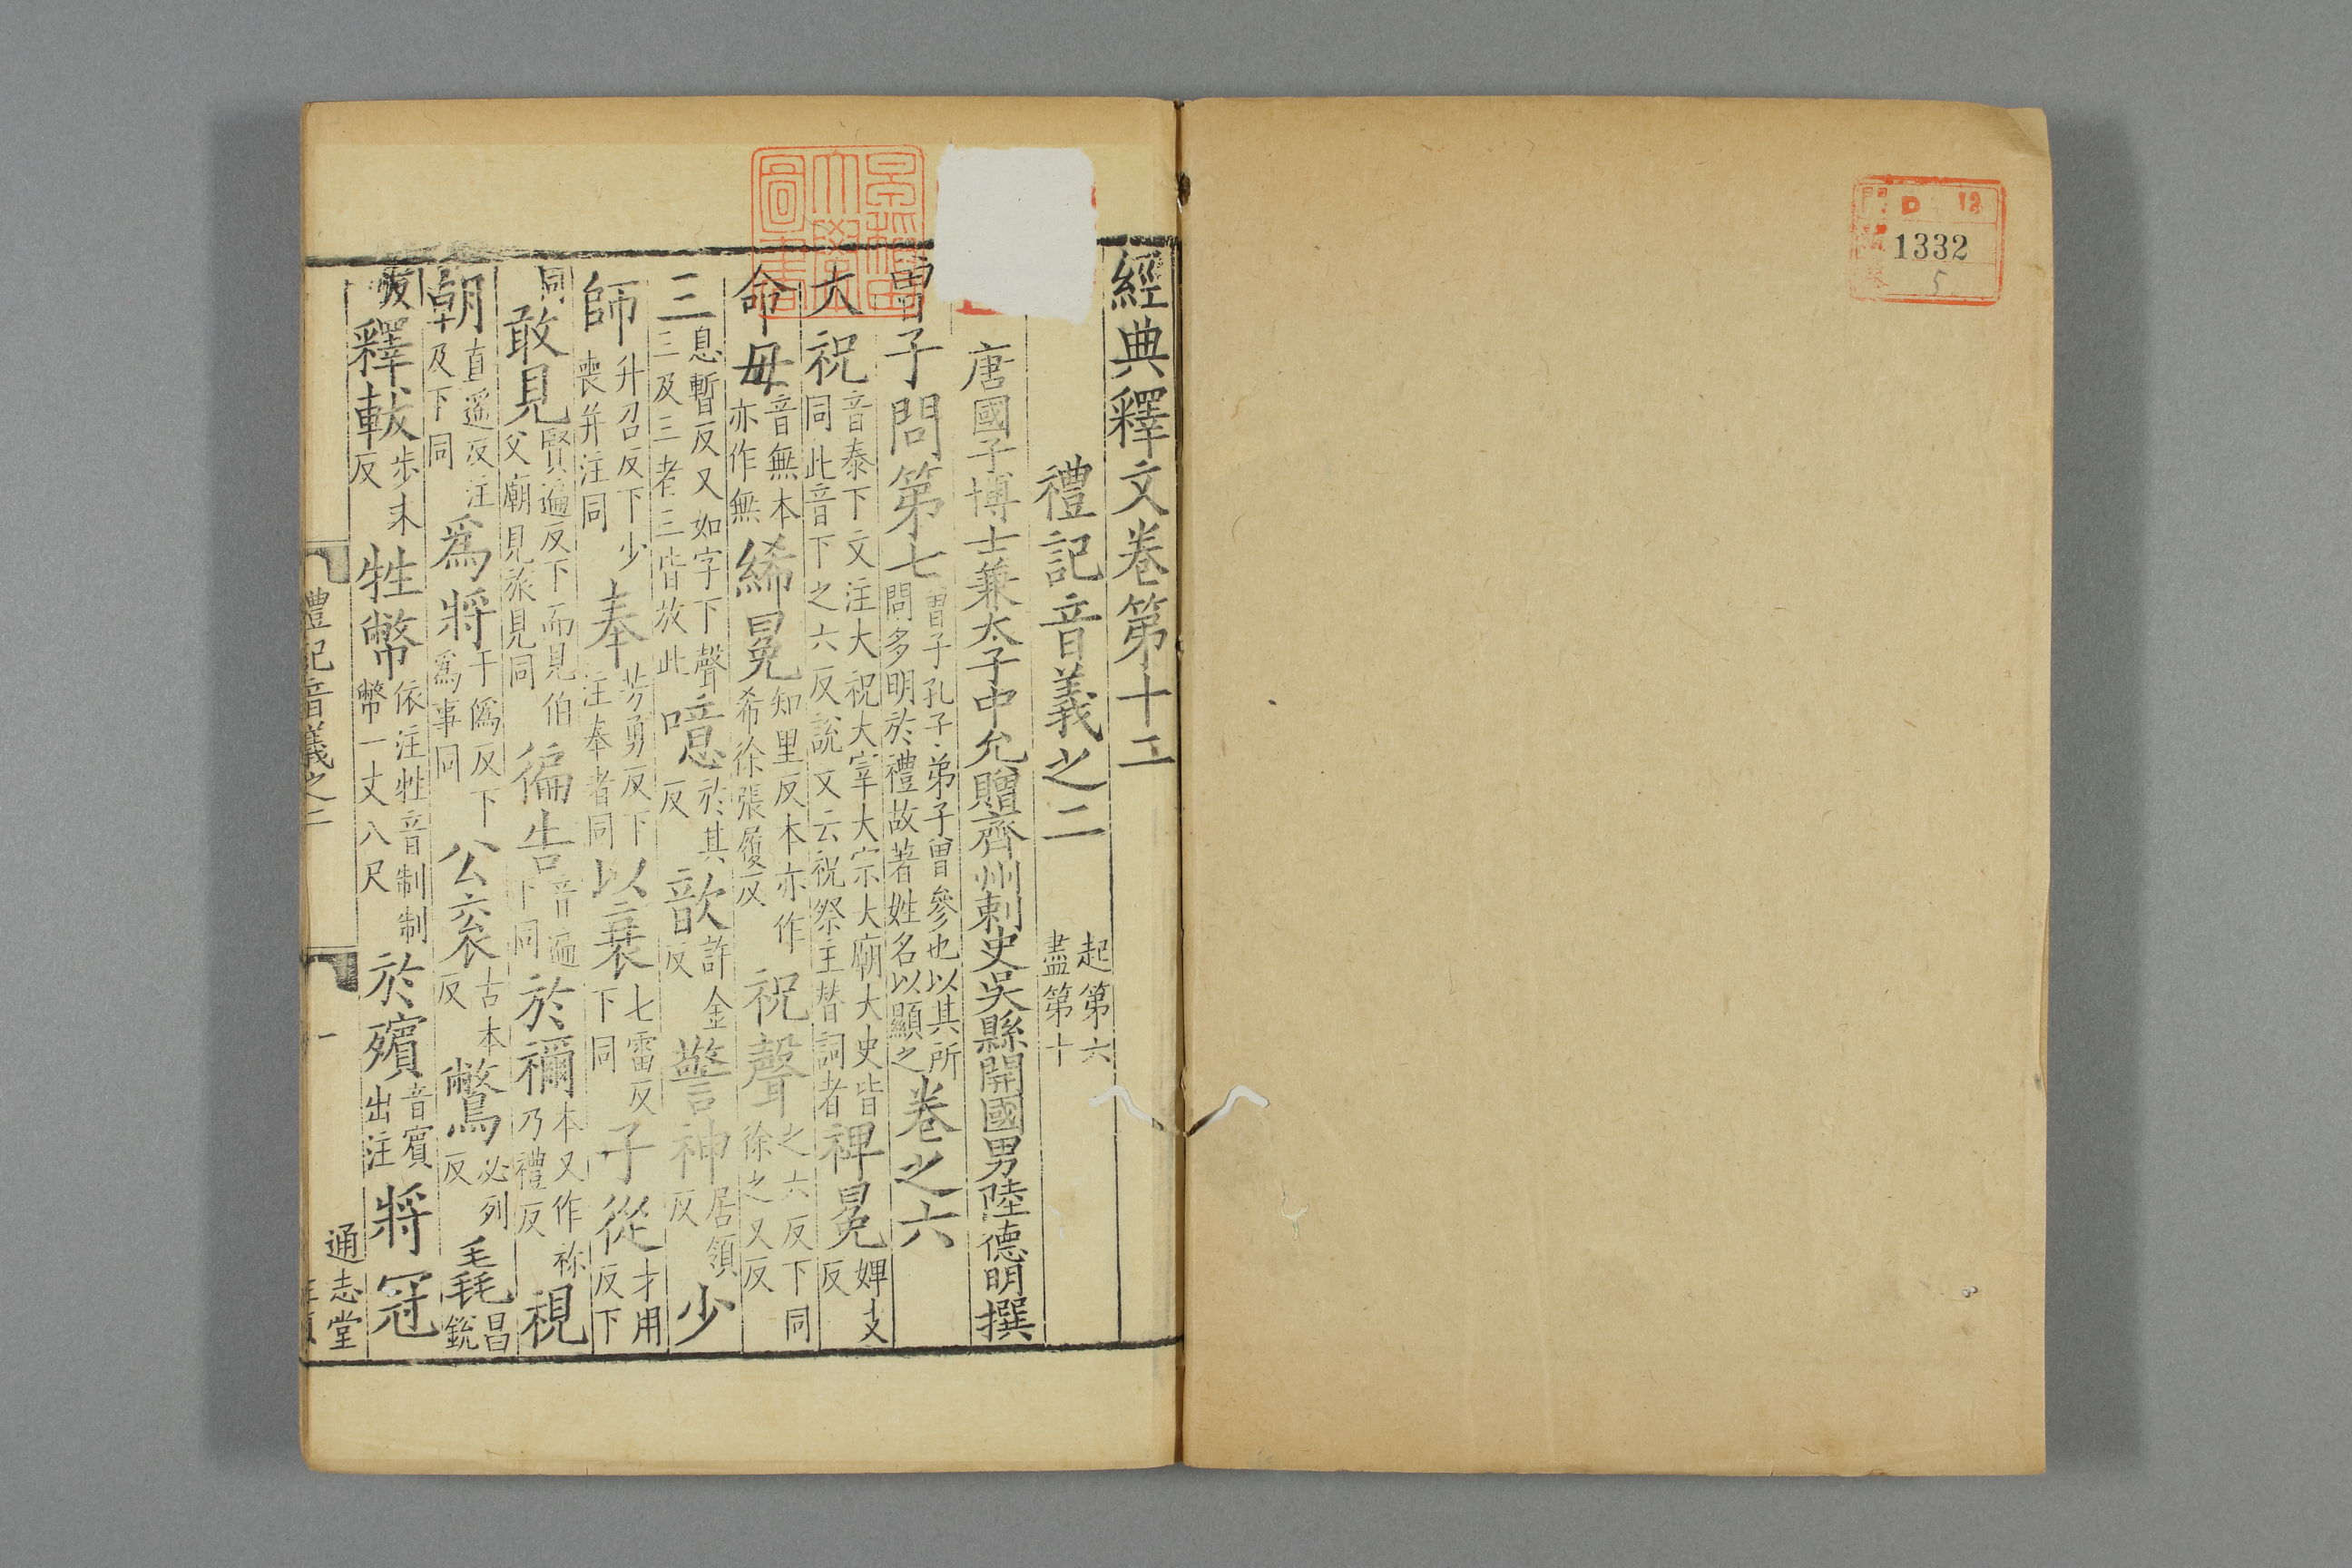 1332
經典釋文卷第十二
禮記音義之二 起第六盡第十
唐國子博士兼太子中允贈齊州刺史吳縣開國男陸德明撰
曾子問第七 曾子孔子弟子曾參也以其所問多明於禮故著姓名以顯之 卷之六
大祝 音泰下文注大祝大宰大宗大廟大史皆同此音下之六反說文云祝祭主替詞者 裨冕 婢支反
命毋 音無本亦作無 絺冕 知里反本亦作希徐張履反 祝聲 之六反下同徐之又反
三 息暫反又如字下聲三及三者三皆放此 噫 於其反 歆 許金反 警神 居領反 少
師 升召反下少喪并注同 奉 芳勇反下注奉者同 以衰 七雷反下同 子從 才用反下
同 敢見 賢遍反下而見伯父廟見旅見同 徧告 音遍下同 於禰 本又作祢乃禮反 視
朝 直遥反注及下同 爲將 于僞反下爲事同 公衮 古本反 鷩 必列反 毳 昌銳
反 釋軷 步末反 牲幣 依注牲音制制幣一丈八尺 於殯 音賓出注 將冠
禮記音義之二 一 通志堂